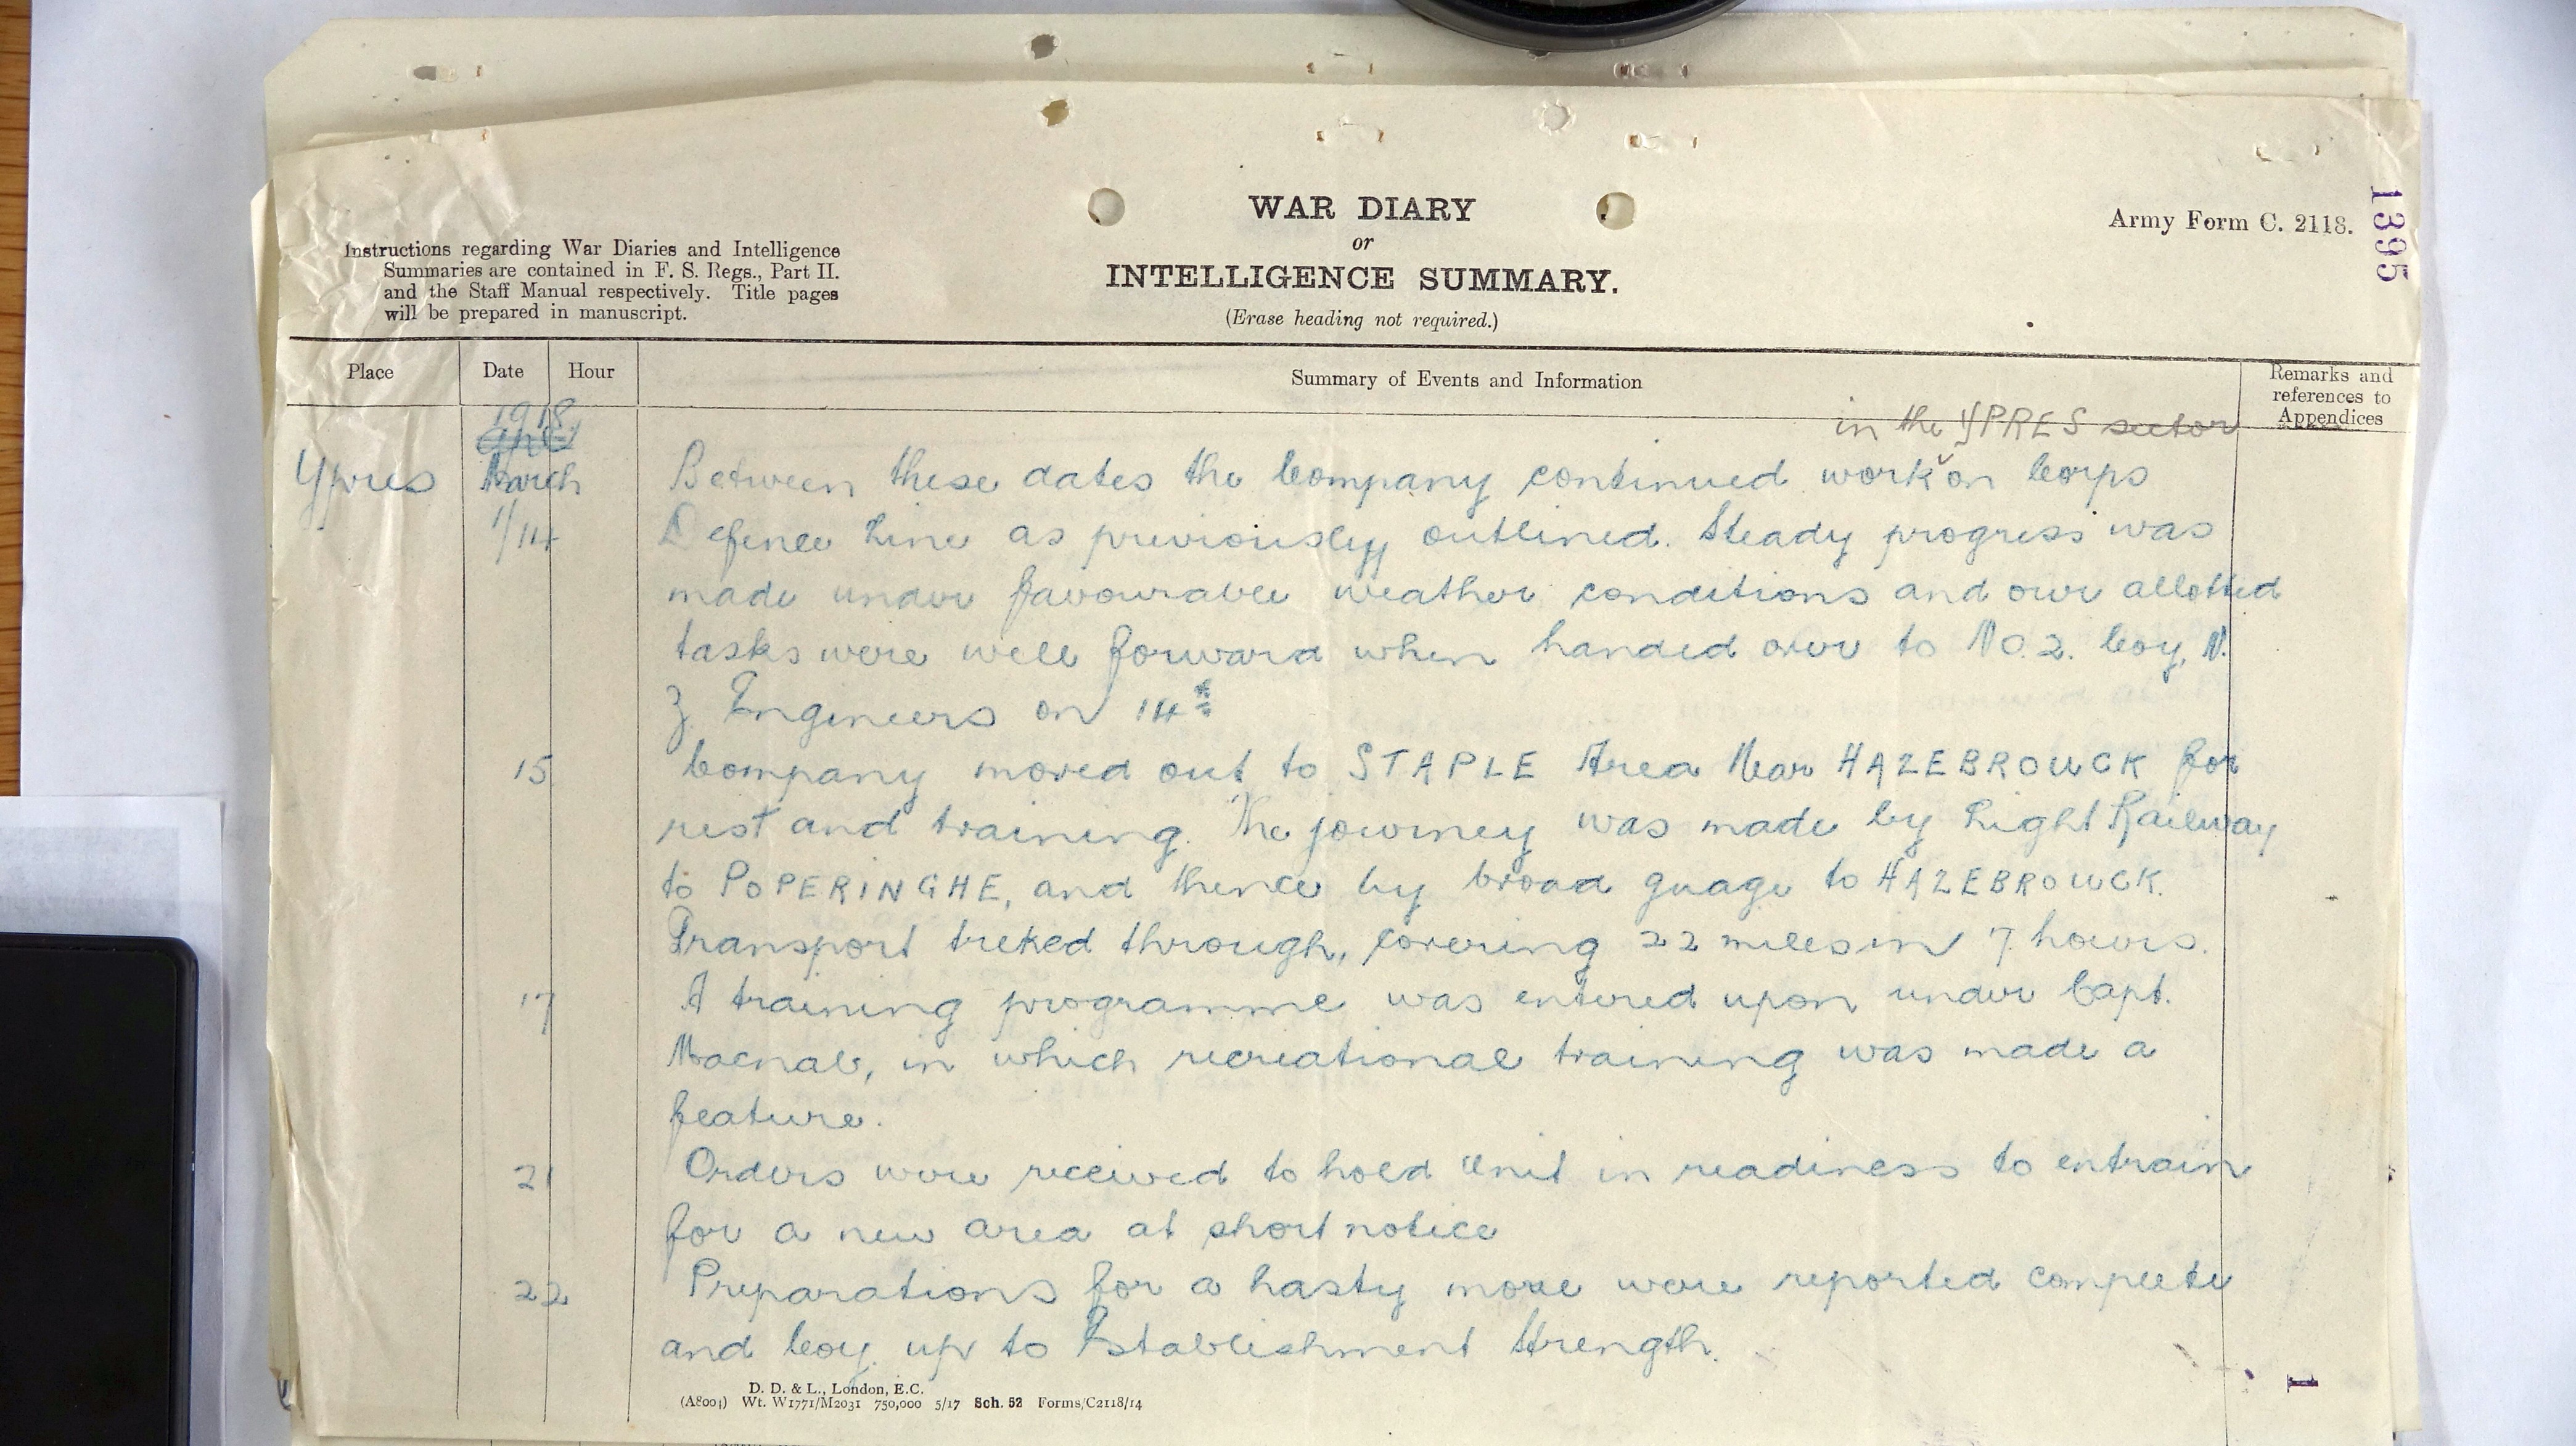 WAR DIARY
or
INTELLIGENCE SUMMARY.
(Erase heading not required.)
Army Form C. 2118.
1395
Instructions regarding War Diaries and Intelligence
Summaries are contained in F. S. Regs., Part II.
and the Staff Manual respectively. Title pages
will be prepared in manuscript.
Place
Date
Hour
Summary of Events and Information
Remarks and
references to
Appendices
1918
in the YPRES sector
Ypres March Between these dates the Company continued work on Corps
1/14 Defence Line as previously outlined. Steady progress was
made under favourable weather conditions and our allotted
tasks were well forward when handed over to No. 2. Coy, N.
Z Engineers on 14th
15 Company moved out to STAPLE Area Near HAZEBROUCK for
rest and training. The journey was made by Light Railway
to POPERINGHE, and thence by broad guage to HAZEBROUCK.
Transport treked through, covering 22 miles in 7 hours.
17 A training programme was entered upon under Capt.
Macnab, in which recreational training was made a
feature.
21 Orders were received to hold Unit in readiness to entrain
for a new area at short notice
22 Preparations for a hasty move were reported complete
and Coy. up to Establishment Strength.
D. D. & L., London, E.C.
(A8004) Wt. W1771/M2031 750,000 5/17 Sch. 52 Forms/C2118/14
1